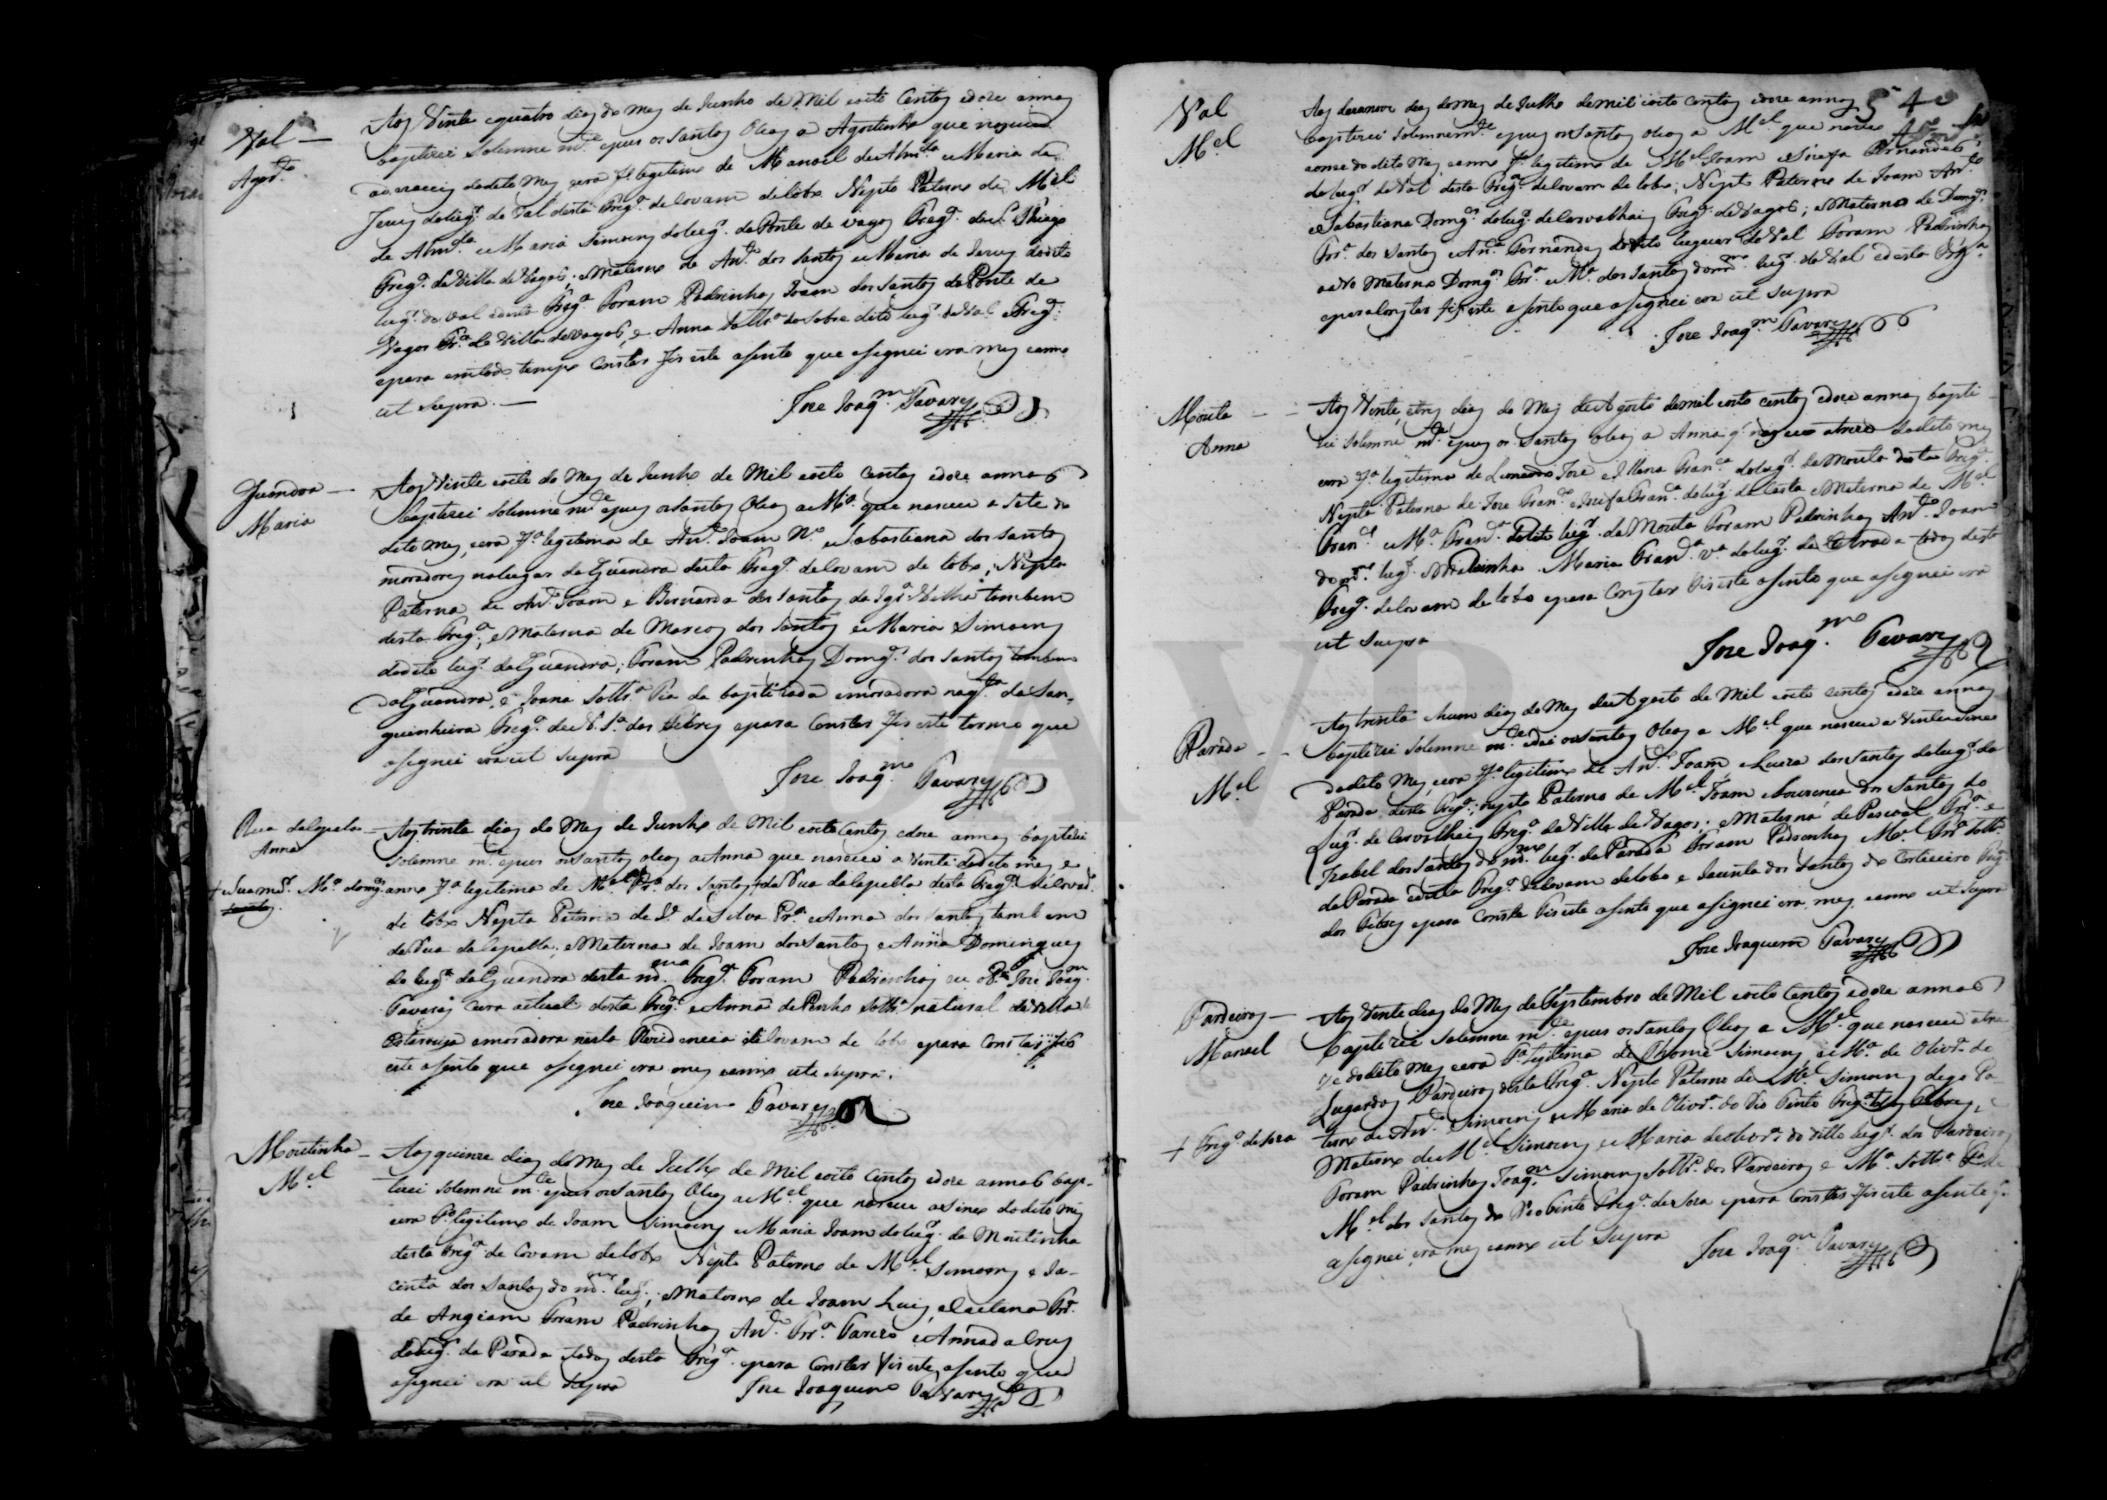 Val —
Agost.º
Aos Vinte equatro dias do Mes de Junho de Mil eoito Centos edoze annos
baptizei Solemne m.te epus os Santos Oleos a Agostinho que nasceu
dodito Mes, eera f.º legitimo de Manoel de Alm.da e Maria de
Jesus dolug.r do Val desta Freg.ª de Covam de Lobo Nepto Paterno de M.el
de Alm.da e Maria Simoens dolug.r da Ponte de Vagos Freg.ª de S. Thiago
Freg.ª da Villa de Vagos; eMaterno de An.to dos Santos e Maria de Jesus dodito
lug.r do Val desta Freg.ª Foram Padrinhos Joam dos Santos da Ponte de
Vagos Fr.ª da Villa de Vagos, e Anna Soltr.ª do Sobre dito lug.r do Val eFreg.ª
epara emtodo tempo Constar fis este asento que asignei era mes eanno
ut Supra. —
Joze Joaq.m Tavares
Guandra —
Maria
Aos Vinte eoito do Mes de Junho de Mil eoito Centos edoze annos
baptizei Solemne m.te epus os Santos Oleos a M.ª que nasceu a Sete do
dito Mes, eera f.ª legitima de An.to Joam N.º e Sabastiana dos Santos
moradores nolugar da Guandra desta Freg.ª de Covam de Lobo; Nepta
Paterna de An.to Joam e Bernarda dos Santos da Villa tambem
desta Freg.ª; eMaterna de Marcos dos Santos e Maria Simoens
dodito lug.r da Guandra; Foram Padrinhos Domg.os dos Santos tambem
da Guandra, e Joana Soltr.ª Tia da baptizada emoradora naq.ta da San-
guinheira Freg.ª de N. S.ª dos Febres epara Constar fis este termo que
asignei era ut Supra
Joze Joaq.m Tavares
Rua dalapela —
Anna
Aos trinta dias do Mes de Junho de Mil eoito Centos edoze annos baptizei
Solemne m.te epus os Santos Oleos a Anna que nasceu a Vinte dodito mes e
+ eSua m.er M.ª domg.es
anno f.ª legitima de M.el Fr.ª dos Santos + da Rua dalapella desta Freg.ª de Covam
de Lobo Nepta Paterna de da Silva Fr.ª e Anna dos Santos tambem
da Rua dalapella; eMaterna de Joam dos Santos e Anna Domingues
do lug.r da Guandra desta m.ma Freg.ª Foram Padrinhos eu o P.e Joze Joaq.m
Tavares Cura actual desta Freg.ª e Anna de Pinho Soltr.ª natural da Villa de
Estarreja emoradora nesta Rezidencia de Covam de Lobo epara Constar fis
este asento que asignei era mes eanno ut Supra.
Joze Joaquim Tavares
Moutinha —
M.el
Aos quinze dias do Mes de Julho de Mil eoito Centos edoze annos bap-
tizei Solemne m.te epus os Santos Oleos a M.el que nasceu a Sinco dodito mes
eera f.º legitimo de Joam Simoens e Maria Joam dolug.r da Moutinha
desta Freg.ª de Covam de Lobo Nepto Paterno de M.el Simoens e Ja-
cinta dos Santos do m.mo lug.r; eMaterno de Joam Luis, e Caetana Fr.ª
de Angiam Foram Padrinhos An.to Fr.ª e Anna da Crus
dolug.r da Parada todos desta Freg.ª epara Constar fis este asento que
asignei era ut Supra
Joze Joaquim Tavares
54
Val
M.el
Aos dezanove dias do mes de Julho de mil eoito Centos edoze annos
baptizei Solemnem.te epus os Santos Oleos a M.el que nasceu
aonze do dito Mes eanno f.º legitimo de M.el Joam e Jozefa Fernandes
do lug.r do Val desta Freg.ª de Covam de Lobo; Nepto Paterno de Joam An.to
e Sabastiana Domg.es do lug.r de Carvalhais Freg.ª de Vagos; eMaterno de Domg.os
Fr.ª dos Santos e An.ª Fernandes dodito lugar do Val Foram Padrinhos
oavo Materno Domg.os Fr.ª e M.ª dos Santos dom.mo lug.r do Val edesta Freg.ª
epara Constar fis este asento que asignei era ut Supra
Joze Joaq.m Tavares
Mouta — —
Anna
Aos Vinte, etres dias do Mes de Agosto de mil eoito Centos edoze annos bapti-
zei Solemne m.te epus os Santos Oleos a Anna q.e nasceu atreze dodito Mes
eera f.ª legitima de Lionardo Joze e Illena Fran.ca dolug.r da Mouta desta Freg.ª
Nepta Paterna de Joze Fran.co e Jozefa Fran.ca dolug.r da Costa eMaterna de M.el
Fran.co e M.ª Fran.ca dodito lug.r da Mouta Foram Padrinhos An.to Joam
do m.mo lug.r eMadrinha Maria Fran.ca v.ª dolug.r da todos desta
Freg.ª de Covam de Lobo epara Constar fis este asento que asignei era
ut Supra
Joze Joaq.m Tavares
Parada — —
M.el
Aos trinta ehum dias do Mes de Agosto de Mil eoito centos edoze annos
baptizei Solemne m.te edei os Santos Oleos a M.el que nasceu a Vinte esinco
dodito Mes, eera f.º legitimo de An.to Joam e Luiza dos Santos dolug.r da
Parada desta Freg.ª; nepto Paterno de M.el Joam e Lourença dos Santos do
lug.r de Carvalhais Freg.ª da Villa de Vagos; e Materno de Pascoal Fr.ª e
Izabel dos Santos do m.mo lug.r da Parada Foram Padrinhos M.el Fr.ª Soltr.º
da Parada edesta Freg.ª de Covam de Lobo e Jacinta dos Santos do Corticeiro Freg.ª
dos Febres epara Constar fis este asento que asignei era mes eanno ut Supra
Joze Joaquim Tavares
Pardeiros —
Manoel
Aos Vinte dias do Mes de Septembro de Mil eoito Centos edoze annos
baptizei Solemne m.te epus os Santos Oleos a M.el que nasceu atre-
ze do dito Mes eera f.º legitimo de Thome Simoens e M.ª de Olivr.ª do
Lugar dos Pardeiros desta Freg.ª Nepto Paterno de M.el Simoens digo Pa-
+ Freg.ª de Soza
terno de An.to Simoens e Maria de Olivr.ª do Rio Tinto Freg.ª dos Febres, e
Materno de M.el Simoens e Maria de Olivr.ª do dito lug.r dos Pardeiros
Foram Padrinhos Joaq.m Simoens Soltr.º dos Pardeiros e M.ª Soltr.ª f.ª de
M.el dos Santos do Rio Tinto Freg.ª de Soza epara Constar fis este asento q.e
asignei era mes eanno ut Supra
Joze Joaq.m Tavares
AUAVR